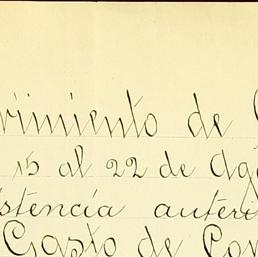 vimiento de
15 al 22 de Ago
istencia anteri
Gasto de Con